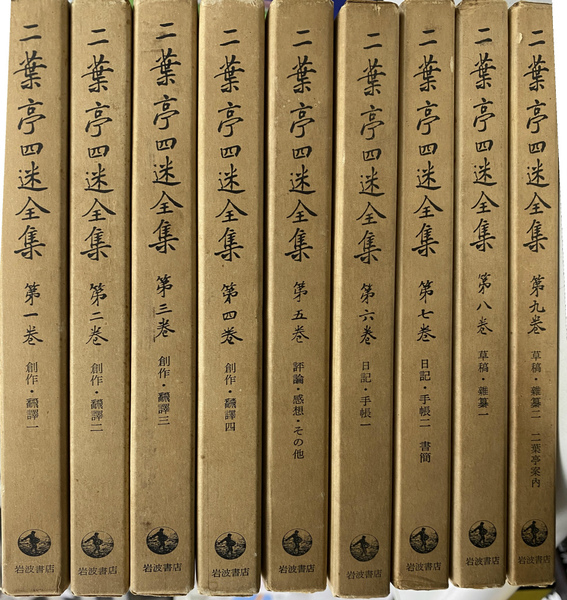 二葉亭四迷全集 第一巻 創作・飜譯一 岩波書店
二葉亭四迷全集 第二巻 創作・飜譯二 岩波書店
二葉亭四迷全集 第三巻 創作・飜譯三 岩波書店
二葉亭四迷全集 第四巻 創作・飜譯四 岩波書店
二葉亭四迷全集 第五巻 評論・感想・その他 岩波書店
二葉亭四迷全集 第六巻 日記・手帳一 岩波書店
二葉亭四迷全集 第七巻 日記・手帳二 書簡 岩波書店
二葉亭四迷全集 第八巻 草稿・雜纂一 岩波書店
二葉亭四迷全集 第九巻 草稿・雜纂二 二葉亭案内 岩波書店